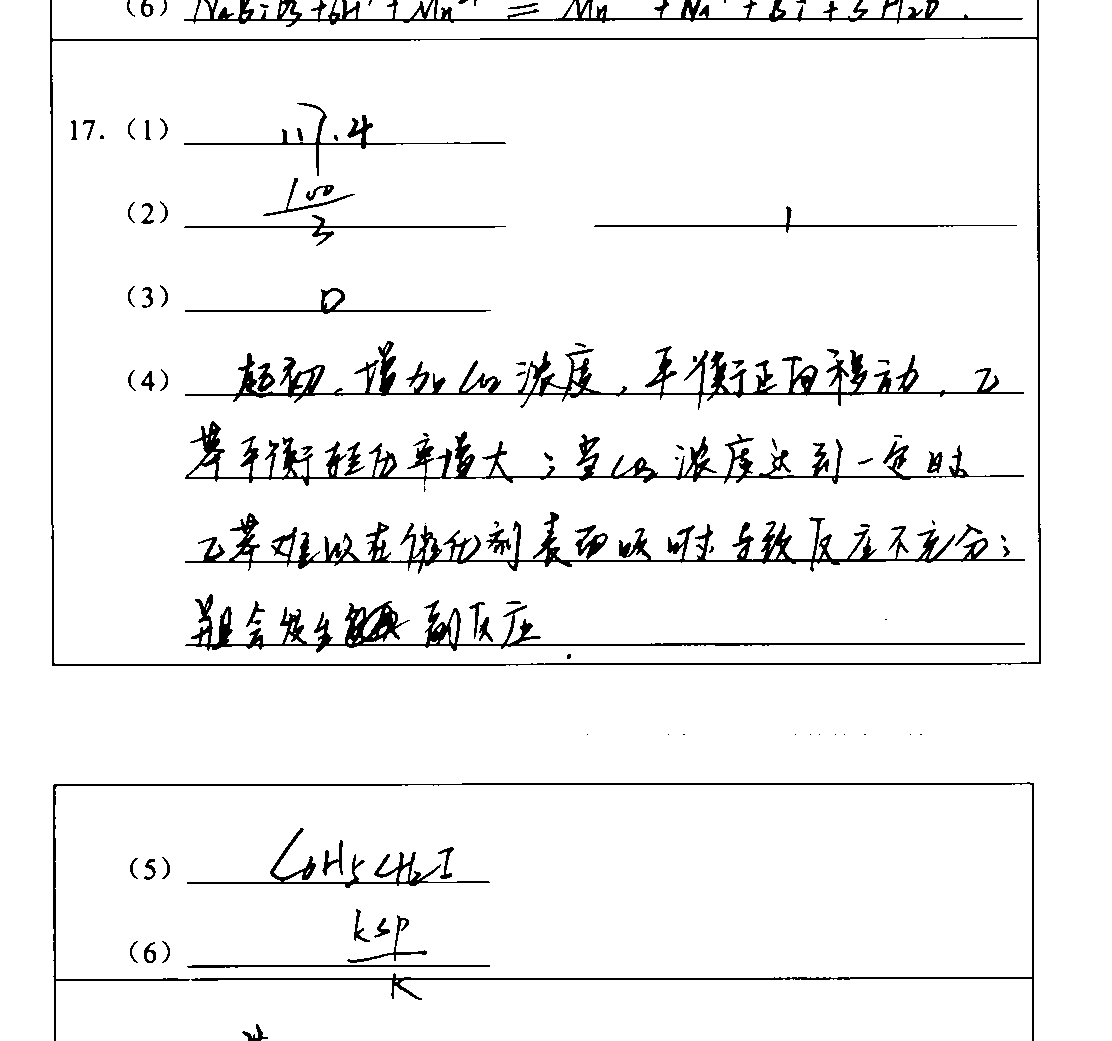 (6) NaBiO3+6H++Mn2+ = Mn +Na++Bi+3H2O.
17. (1) 117.4
(2) 100/3 1
(3) D
(4) 起初,增加CO2浓度,平衡正向移动,乙
苯平衡转化率增大;当CO2浓度达到一定时
乙苯难以在催化剂表面吸附导致反应不充分;
并且会发生副反应
(5) C6H5CH2I
(6) Ksp/K